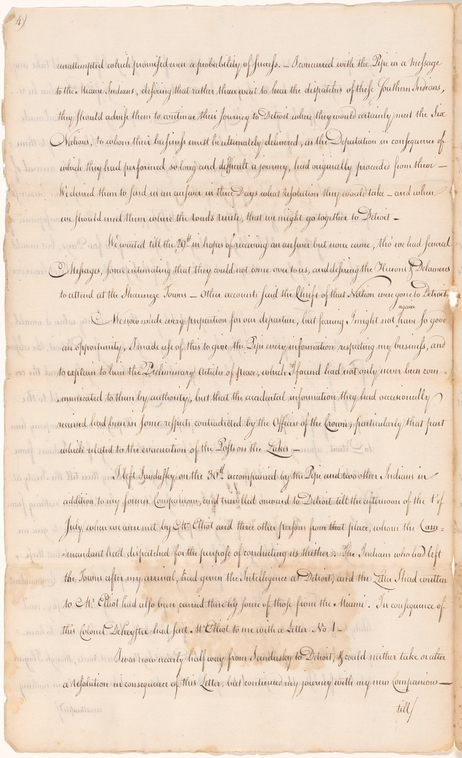 4)
unattempted which promised even a probability of success. – I concurred with the Pipe in a Message
to the Miami Indians, desiring that rather than wait to hear the dispatches of these Southern Indians,
they should advise them to continue their Journey to Detroit where they would certainly meet the Six
Nations, to whom their business must be ultimately delivered, as the Deputation in consequence of
which they had performed so long and difficult a journey, had originally proceeded from them –
We desired them to send us an answer in three Days what resolution they would take – and where
we should meet them where the roads unite, that we might go together to Detroit –
We waited till the 29th in hopes of receiving an answer but none came, tho' we had several
Messages, some intimating that they could not come over to us, and desiring the Hurons & Delawares
to attend at the Shawnese Towns – Other accounts said the Chiefs of that Nation were gone to Detroit
again
We now made every preparation for our departure, but fearing I might not have so good
an opportunity, I made use of this to give the Pipe every information respecting my business, and
to explain to him the Preliminary Article of peace, which I found had not only never been com=
=municated to them by authority, but that the accidental information they had occasionally
received had been in some respects contradicted by the Officers of the Crown, particularly that part
which related to the evacuation of the Posts on the Lakes –
I left Sandusky on the 30th accompanied by the Pipe and two other Indians in
addition to my former Companions, and travelled onward to Detroit till the afternoon of the 1st of
July when we were met by Mr. Elliot and three other persons from that place, whom the Com=
=mandant had dispatched for the purpose of conducting us thither: The Indians who had left
the Towns after my arrival, had given the Intelligence at Detroit, and the Letter I had written
to Mr. Elliot had also been carried thereby some of those from the Miami. In consequence of
this Colonel Depeyster had sent Mr. Elliot to me with a Letter No 1 –
I was now nearly half way from Sandusky to Detroit, & could neither take or alter
a resolution in consequence of this Letter, but continued my journey with my new Companions –
till/